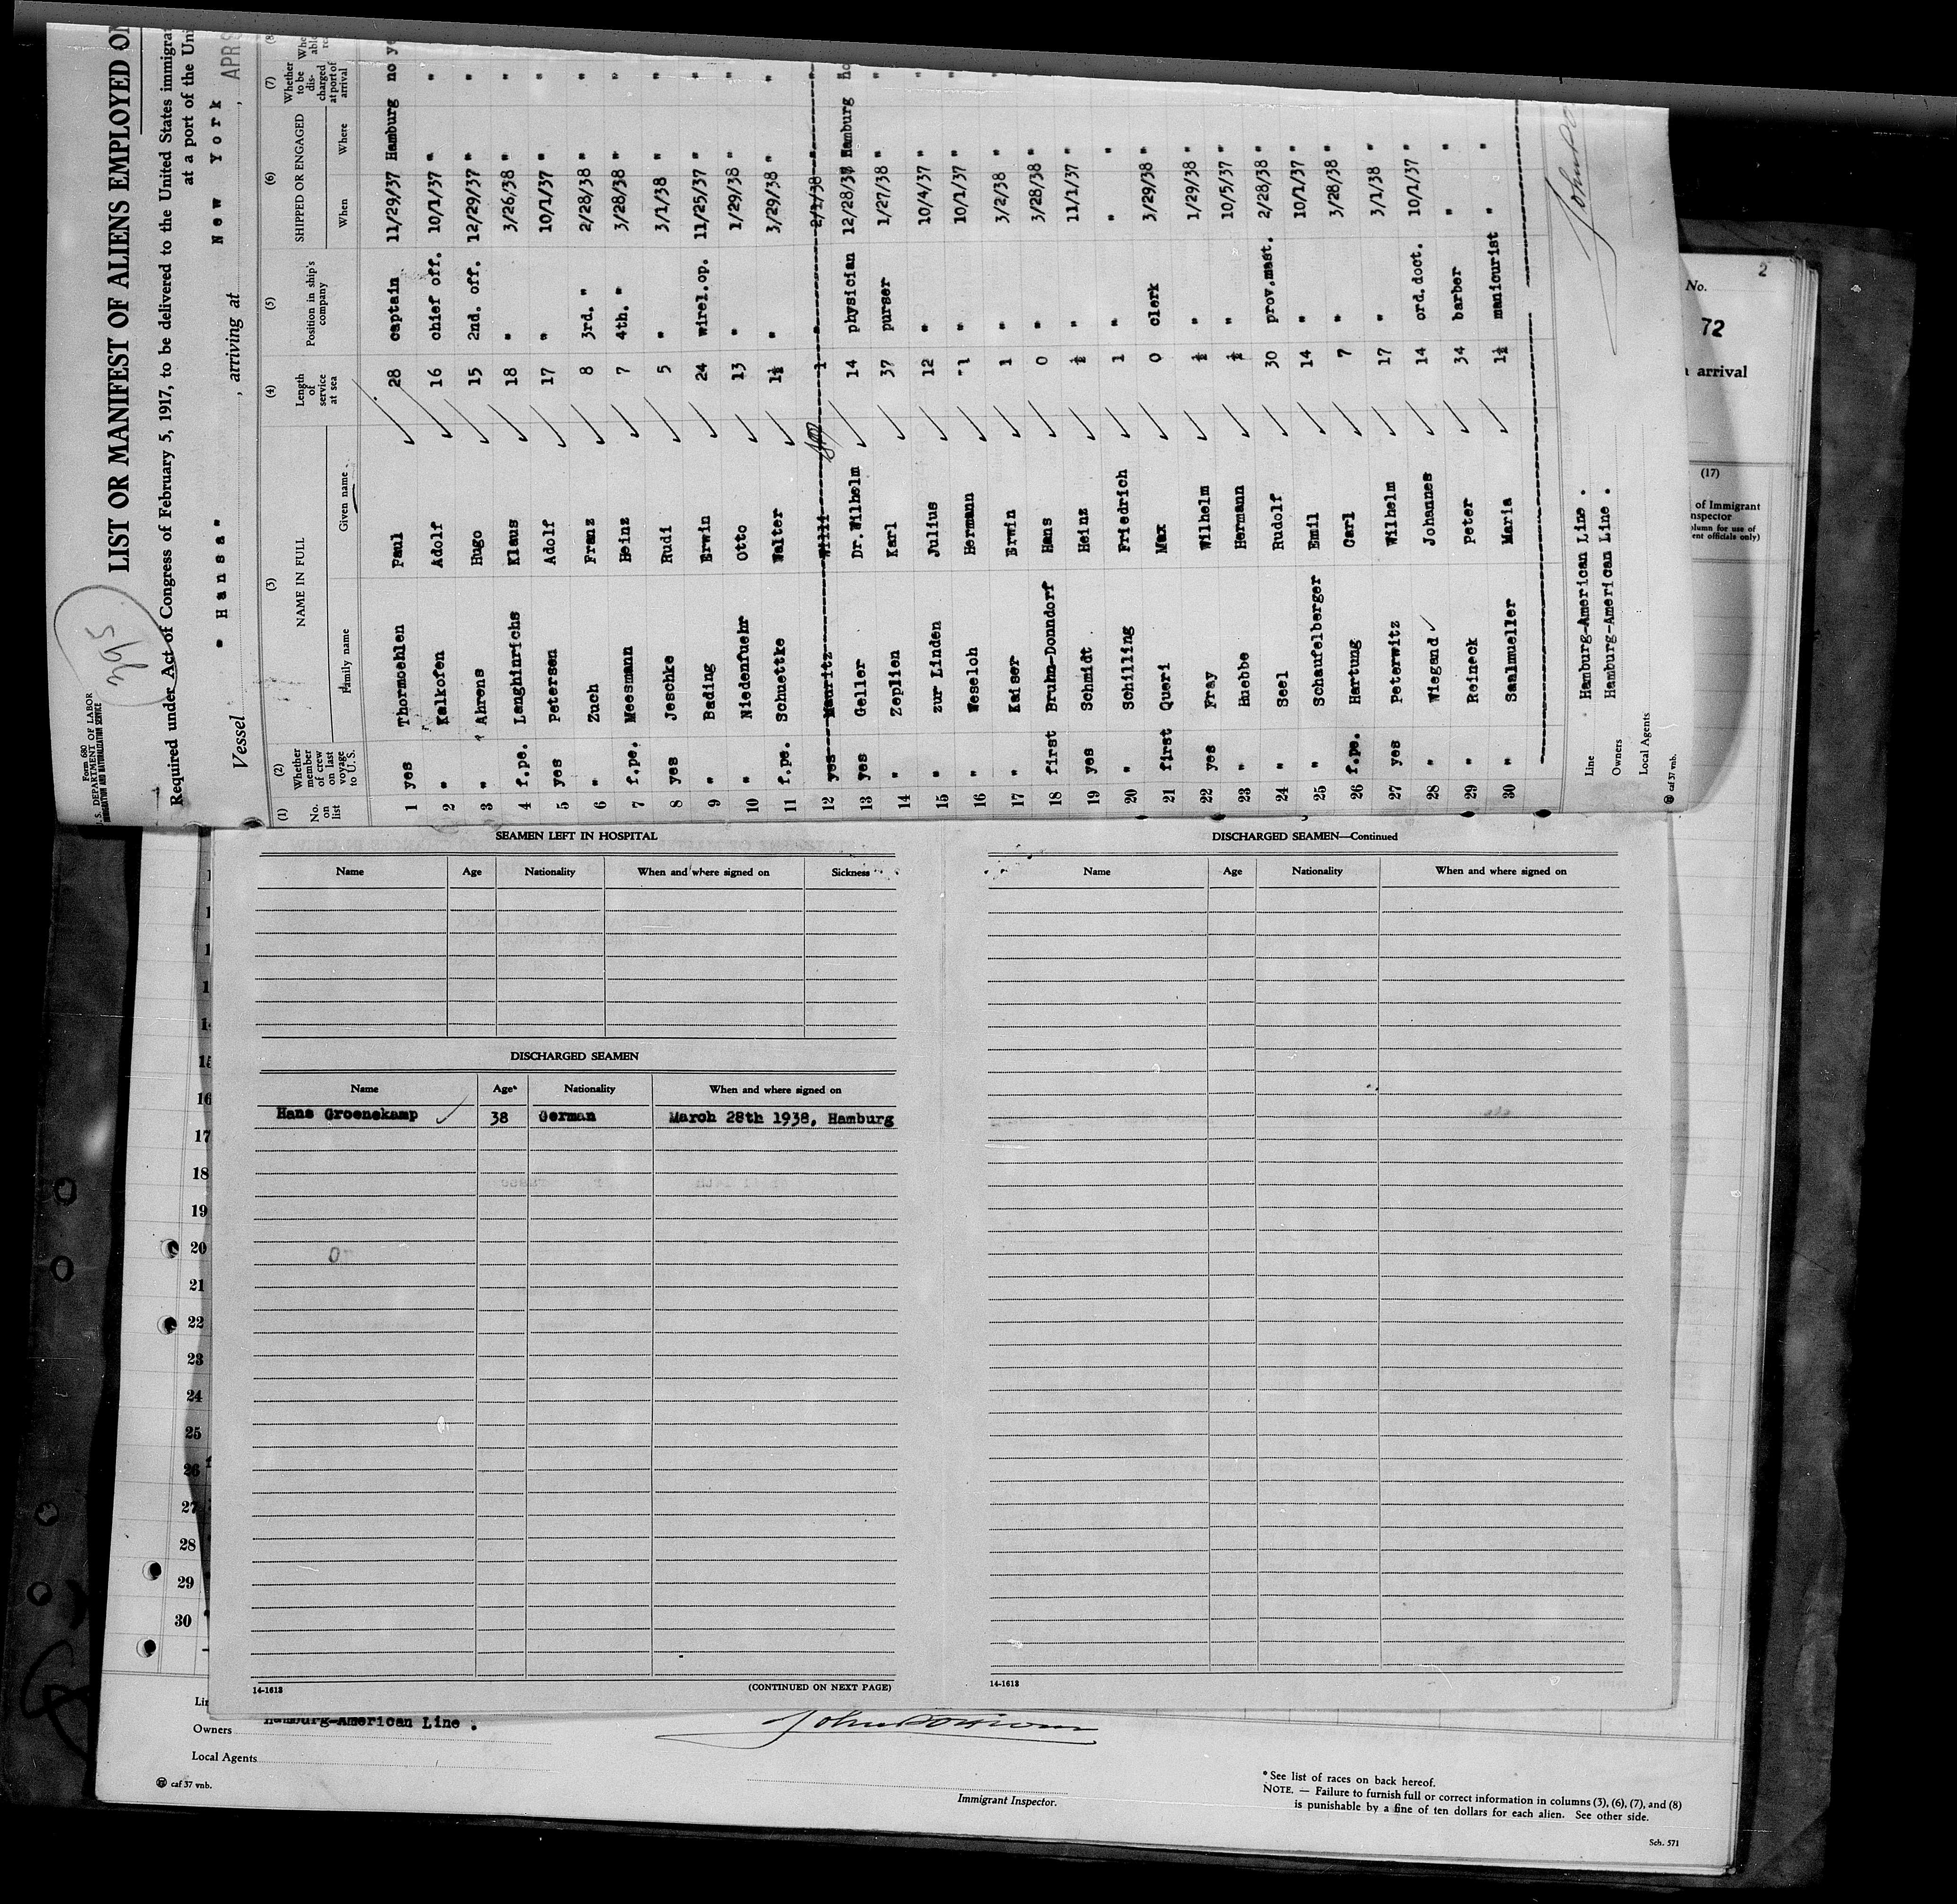 Form 680
U. S. DEPARTMENT OF LABOR
IMMIGRATION AND NATURALIZATION SERVICE
395
LIST OR MANIFEST OF ALIENS EMPLOYED ON
Required under Act of Congress of February 5, 1917, to be delivered to the United States immigra
at a port of the Uni
Vessel " Hansa " , arriving at New York , APR
(1) (2) (3) (4) (5) (6) (7) (8)
No. on list
Whether member of crew on last voyage to U. S.
NAME IN FULL
Family name Given name
Length of service at sea
Position in ship's company
SHIPPED OR ENGAGED
When Where
Whether to be discharged at port of arrival
1 yes Thormoehlen Paul 28 captain 11/29/37 Hamburg no ye
2 " Kalkofen Adolf 16 chief off. 10/1/37 " "
3 " Ahrens Hugo 15 2nd. off. 12/29/37 " "
4 f.pe. Langhinrichs Klaus 18 " 3/26/38 " "
5 yes Petersen Adolf 17 " 10/1/37 " "
6 " Zuch Franz 8 3rd. " 2/28/38 " "
7 f.pe. Meesmann Heinz 7 4th. " 3/28/38 " "
8 yes Jeschke Rudi 5 " 3/1/38 " "
9 " Bading Erwin 24 wirel.op. 11/25/37 " "
10 " Niedenfuehr Otto 13 " 1/29/38 " "
11 f.pe. Schuettke Walter 1½ " 3/29/38 " "
12 yes Mauritz Willi 1 " 2/1/38 " "
13 yes Geller Dr. Wilhelm 14 physician 12/28/37 Hamburg no
14 " Zeplien Karl 37 purser 1/27/38 " "
15 " zur Linden Julius 12 " 10/4/37 " "
16 " Weseloh Hermann 1 " 10/1/37 " "
17 " Kaiser Erwin 1 " 3/2/38 " "
18 first Bruhn-Donndorf Hans 0 " 3/28/38 "
19 yes Schmidt Heinz ½ " 11/1/37 "
20 " Schilling Friedrich 1 " " "
21 first Queri Max 0 clerk 3/29/38 "
22 yes Fray Wilhelm ½ " 1/29/38 "
23 " Huebbe Hermann ½ " 10/5/37 "
24 " Seel Rudolf 30 prov.mast. 2/28/38 "
25 " Schaufelberger Emil 14 " 10/1/37 "
26 f.pe. Hartung Carl 7 " 3/28/38 "
27 yes Peterwitz Wilhelm 17 " 3/1/38 "
28 " Wiegand Johannes 14 ord. doct. 10/1/37 "
29 " Reineck Peter 34 barber " "
30 " Saalmueller Maria 1½ manicurist " "
Line Hamburg-American Line .
Owners Hamburg-American Line .
Local Agents
caf 37 vnb.
2
No.
72
arrival
(17)
of Immigrant
nspector
SEAMEN LEFT IN HOSPITAL
Name Age Nationality When and where signed on Sickness
DISCHARGED SEAMEN
Name Age Nationality When and where signed on
Hans Groenekamp 38 German March 28th 1938, Hamburg
14-1613 (CONTINUED ON NEXT PAGE)
DISCHARGED SEAMEN—Continued
Name Age Nationality When and where signed on
14-1613
15
16
17
18
19
20
21
22
23
24
25
26
27
28
29
30
Owners Hamburg-American Line .
Local Agents
caf 37 vnb.
Immigrant Inspector.
* See list of races on back hereof.
NOTE. — Failure to furnish full or correct information in columns (3), (6), (7), and (8)
is punishable by a fine of ten dollars for each alien. See other side.
Sch. 571